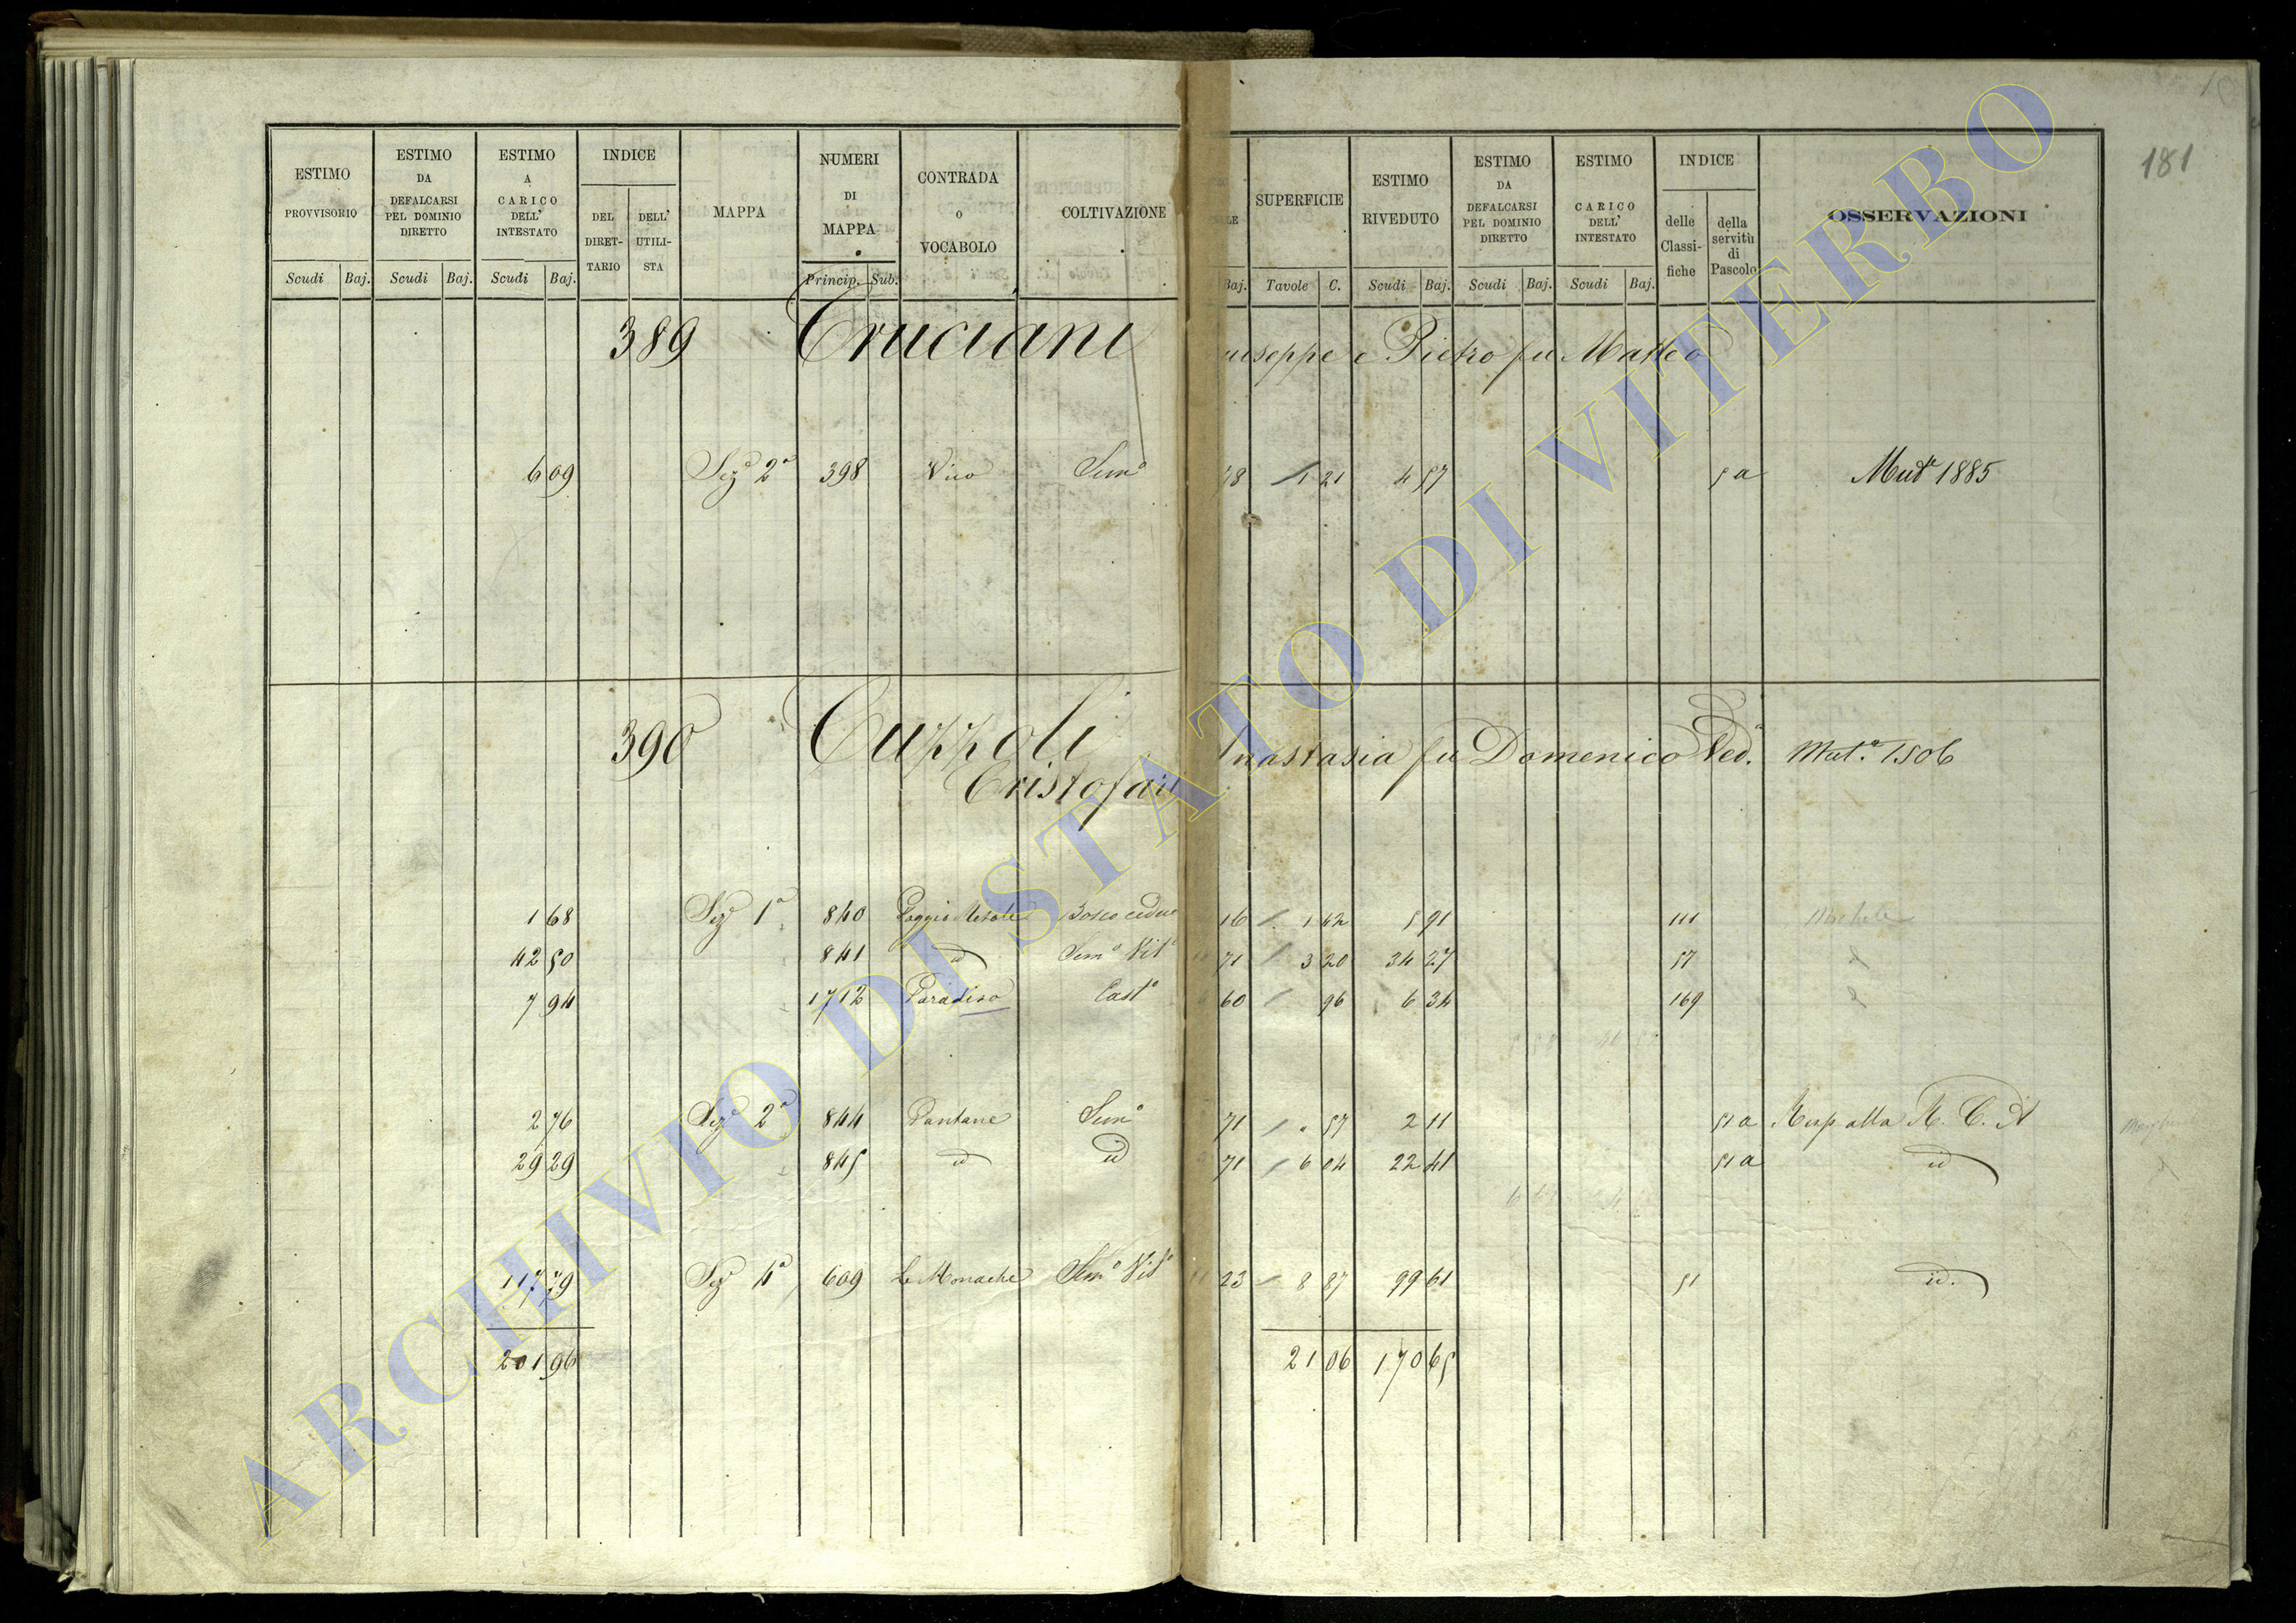 181
ESTIMO PROVVISORIO Scudi Baj.
ESTIMO DA DEFALCARSI PEL DOMINIO DIRETTO Scudi Baj.
ESTIMO A CARICO DELL' INTESTATO Scudi Baj.
INDICE DEL DIRET-TARIO DELL' UTILI-STA
MAPPA
NUMERI DI MAPPA Princip. Sub.
CONTRADA O VOCABOLO
COLTIVAZIONE
Baj.
SUPERFICIE Tavole C.
ESTIMO RIVEDUTO Scudi Baj.
ESTIMO DA DEFALCARSI PEL DOMINIO DIRETTO Scudi Baj.
ESTIMO CARICO DELL' INTESTATO Scudi Baj.
INDICE delle Classi-fiche della servitù di Pascolo
OSSERVAZIONI
389 Cruciani useppe e Pietro fu Matteo
6 09 Sezᵉ 2ᵃ 398 Vico Semº 48 1 21 4 57 5 a Mutᵉ 1885
390 Cuzzoli nastasia fu Domenico Ved. Mutᵃ 1506
Cristofari
1 68 Sezᵉ 1ᵃ 840 Bosco ceduo 16 1 42 5 91 111
42 50 841 id Semº Vitº 71 3 20 34 27 57
7 94 1712 Paradiso Castº 60 96 6 34 169
2 76 Sezᵉ 2ᵃ 844 Pantane Semº 71 " 57 2 11 51 a alla R. C.
29 29 845 id id 71 6 04 22 41 51 a id
117 79 Sezᵉ 4ᵃ 609 Le Monache Semº Vitº 23 8 87 99 61 51 id.
201 96 21 06 170 65
ARCHIVIO DI STATO DI VITERBO